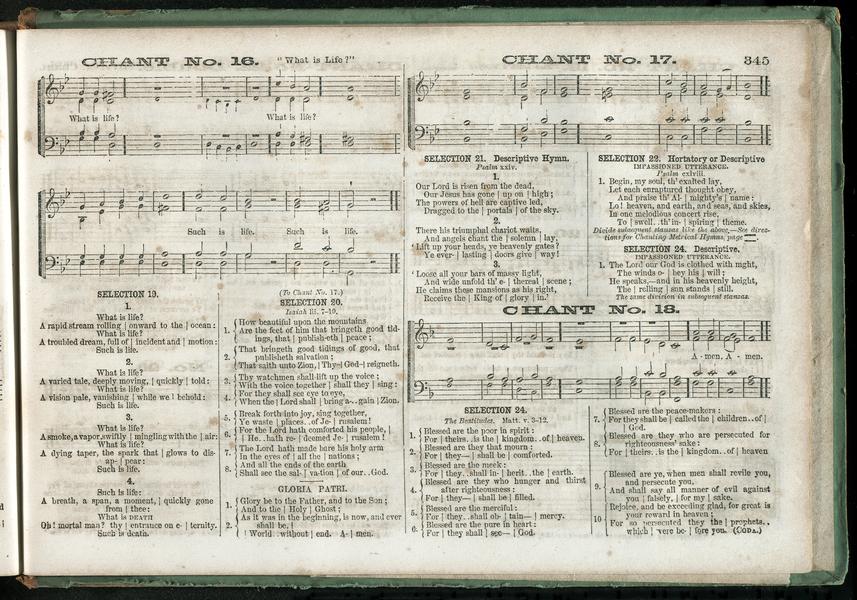 CHANT No. 16.
"What is Life?"
What is life?
What is life?
Such is life.
Such is life.
SELECTION 19.
1.
What is life?
A rapid stream rolling | onward to the | ocean:
What is life?
A troubled dream, full of | incident and | motion:
Such is life.
2.
What is life?
A varied tale, deeply moving, | quickly | told:
What is life?
A vision pale, vanishing | while we | behold:
Such is life.
3.
What is life?
A smoke, a vapor, swiftly | mingling with the | air:
What is life?
A dying taper, the spark that | glows to dis-
ap- | pear:
Such is life.
4.
Such is life:
A breath, a span, a moment, | quickly gone
from | thee:
What is DEATH
Oh! mortal man? thy | entrance on e- | ternity.
Such is death.
(To Chant No. 17.)
SELECTION 20.
Isaiah lii. 7-10.
1. How beautiful upon the mountains
Are the feet of him that bringeth good tid-
ings, that | publish-eth | peace;
2. That bringeth good tidings of good, that
publisheth salvation;
That saith unto Zion, | Thy | God- | reigneth.
3. Thy watchmen shall lift up the voice;
With the voice together | shall they | sing:
4. For they shall see eye to eye,
When the | Lord shall | bring a..gain | Zion.
5. Break forth into joy, sing together,
Ye waste | places..of Je- | rusalem!
6. For the Lord hath comforted his people,
| He..hath re- | deemed Je- | rusalem!
7. The Lord hath made bare his holy arm
In the eyes of | all the | nations;
8. And all the ends of the earth
Shall see the sal- | vation | of our..God.
GLORIA PATRI.
1. Glory be to the Father, and to the Son;
And to the | Holy | Ghost;
2. As it was in the beginning, is now, and ever
shall be,
| World without | end. A- | men.
CHANT No. 17.
345
SELECTION 21. Descriptive Hymn.
Psalm xxiv.
1.
Our Lord is risen from the dead,
Our Jesus has gone | up on | high;
The powers of hell are captive led,
Dragged to the | portals | of the sky.
2.
There his triumphal chariot waits,
And angels chant the | solemn | lay,
'Lift up your heads, ye heavenly gates?
Ye ever- | lasting | doors give | way!
3.
'Loose all your bars of massy light,
And wide unfold th' e- | thereal | scene;
He claims those mansions as his right,
Receive the | King of | glory | in.'
SELECTION 22. Hortatory or Descriptive
IMPASSIONED UTTERANCE.
Psalm cxlviii.
1. Begin, my soul, th' exalted lay,
Let each enraptured thought obey,
And praise th' Al- | mighty's | name:
Lo! heaven, and earth, and seas, and skies,
In one melodious concert rise,
To | swell..th' in- | spiring | theme.
Divide subsequent stanzas like the above.—See direc-
tions for Chanting Metrical Hymns, page
SELECTION 24. Descriptive.
IMPASSIONED UTTERANCE.
1. The Lord our God is clothed with might,
The winds o- | bey his | will;
He speaks,—and in his heavenly height,
The | rolling | sun stands | still.
The same division in subsequent stanzas.
CHANT No. 18.
A - men, A - men.
SELECTION 24.
The Beatitudes. Matt. v. 3-12.
1. Blessed are the poor in spirit:
For | theirs..is the | kingdom..of | heaven.
2. Blessed are they that mourn:
For | they— | shall be | comforted.
3. Blessed are the meek:
For | they..shall in- | herit..the | earth.
4. Blessed are they who hunger and thirst
after righteousness:
For | they— | shall be | filled.
5. Blessed are the merciful:
For | they..shall ob- | tain— | mercy.
6. Blessed are the pure in heart:
For | they shall | see— | God.
7. Blessed are the peace-makers:
For they shall be | called the | children..of |
God.
8. Blessed are they who are persecuted for
righteousness' sake:
For | theirs..is the | kingdom..of | heaven
9. Blessed are ye, when men shall revile you,
and persecute you,
And shall say all manner of evil against
you | falsely, | for my | sake.
10 Rejoice, and be exceeding glad, for great is
your reward in heaven;
For so persecuted they the | prophets..
which | were be- | fore you. (CODA.)